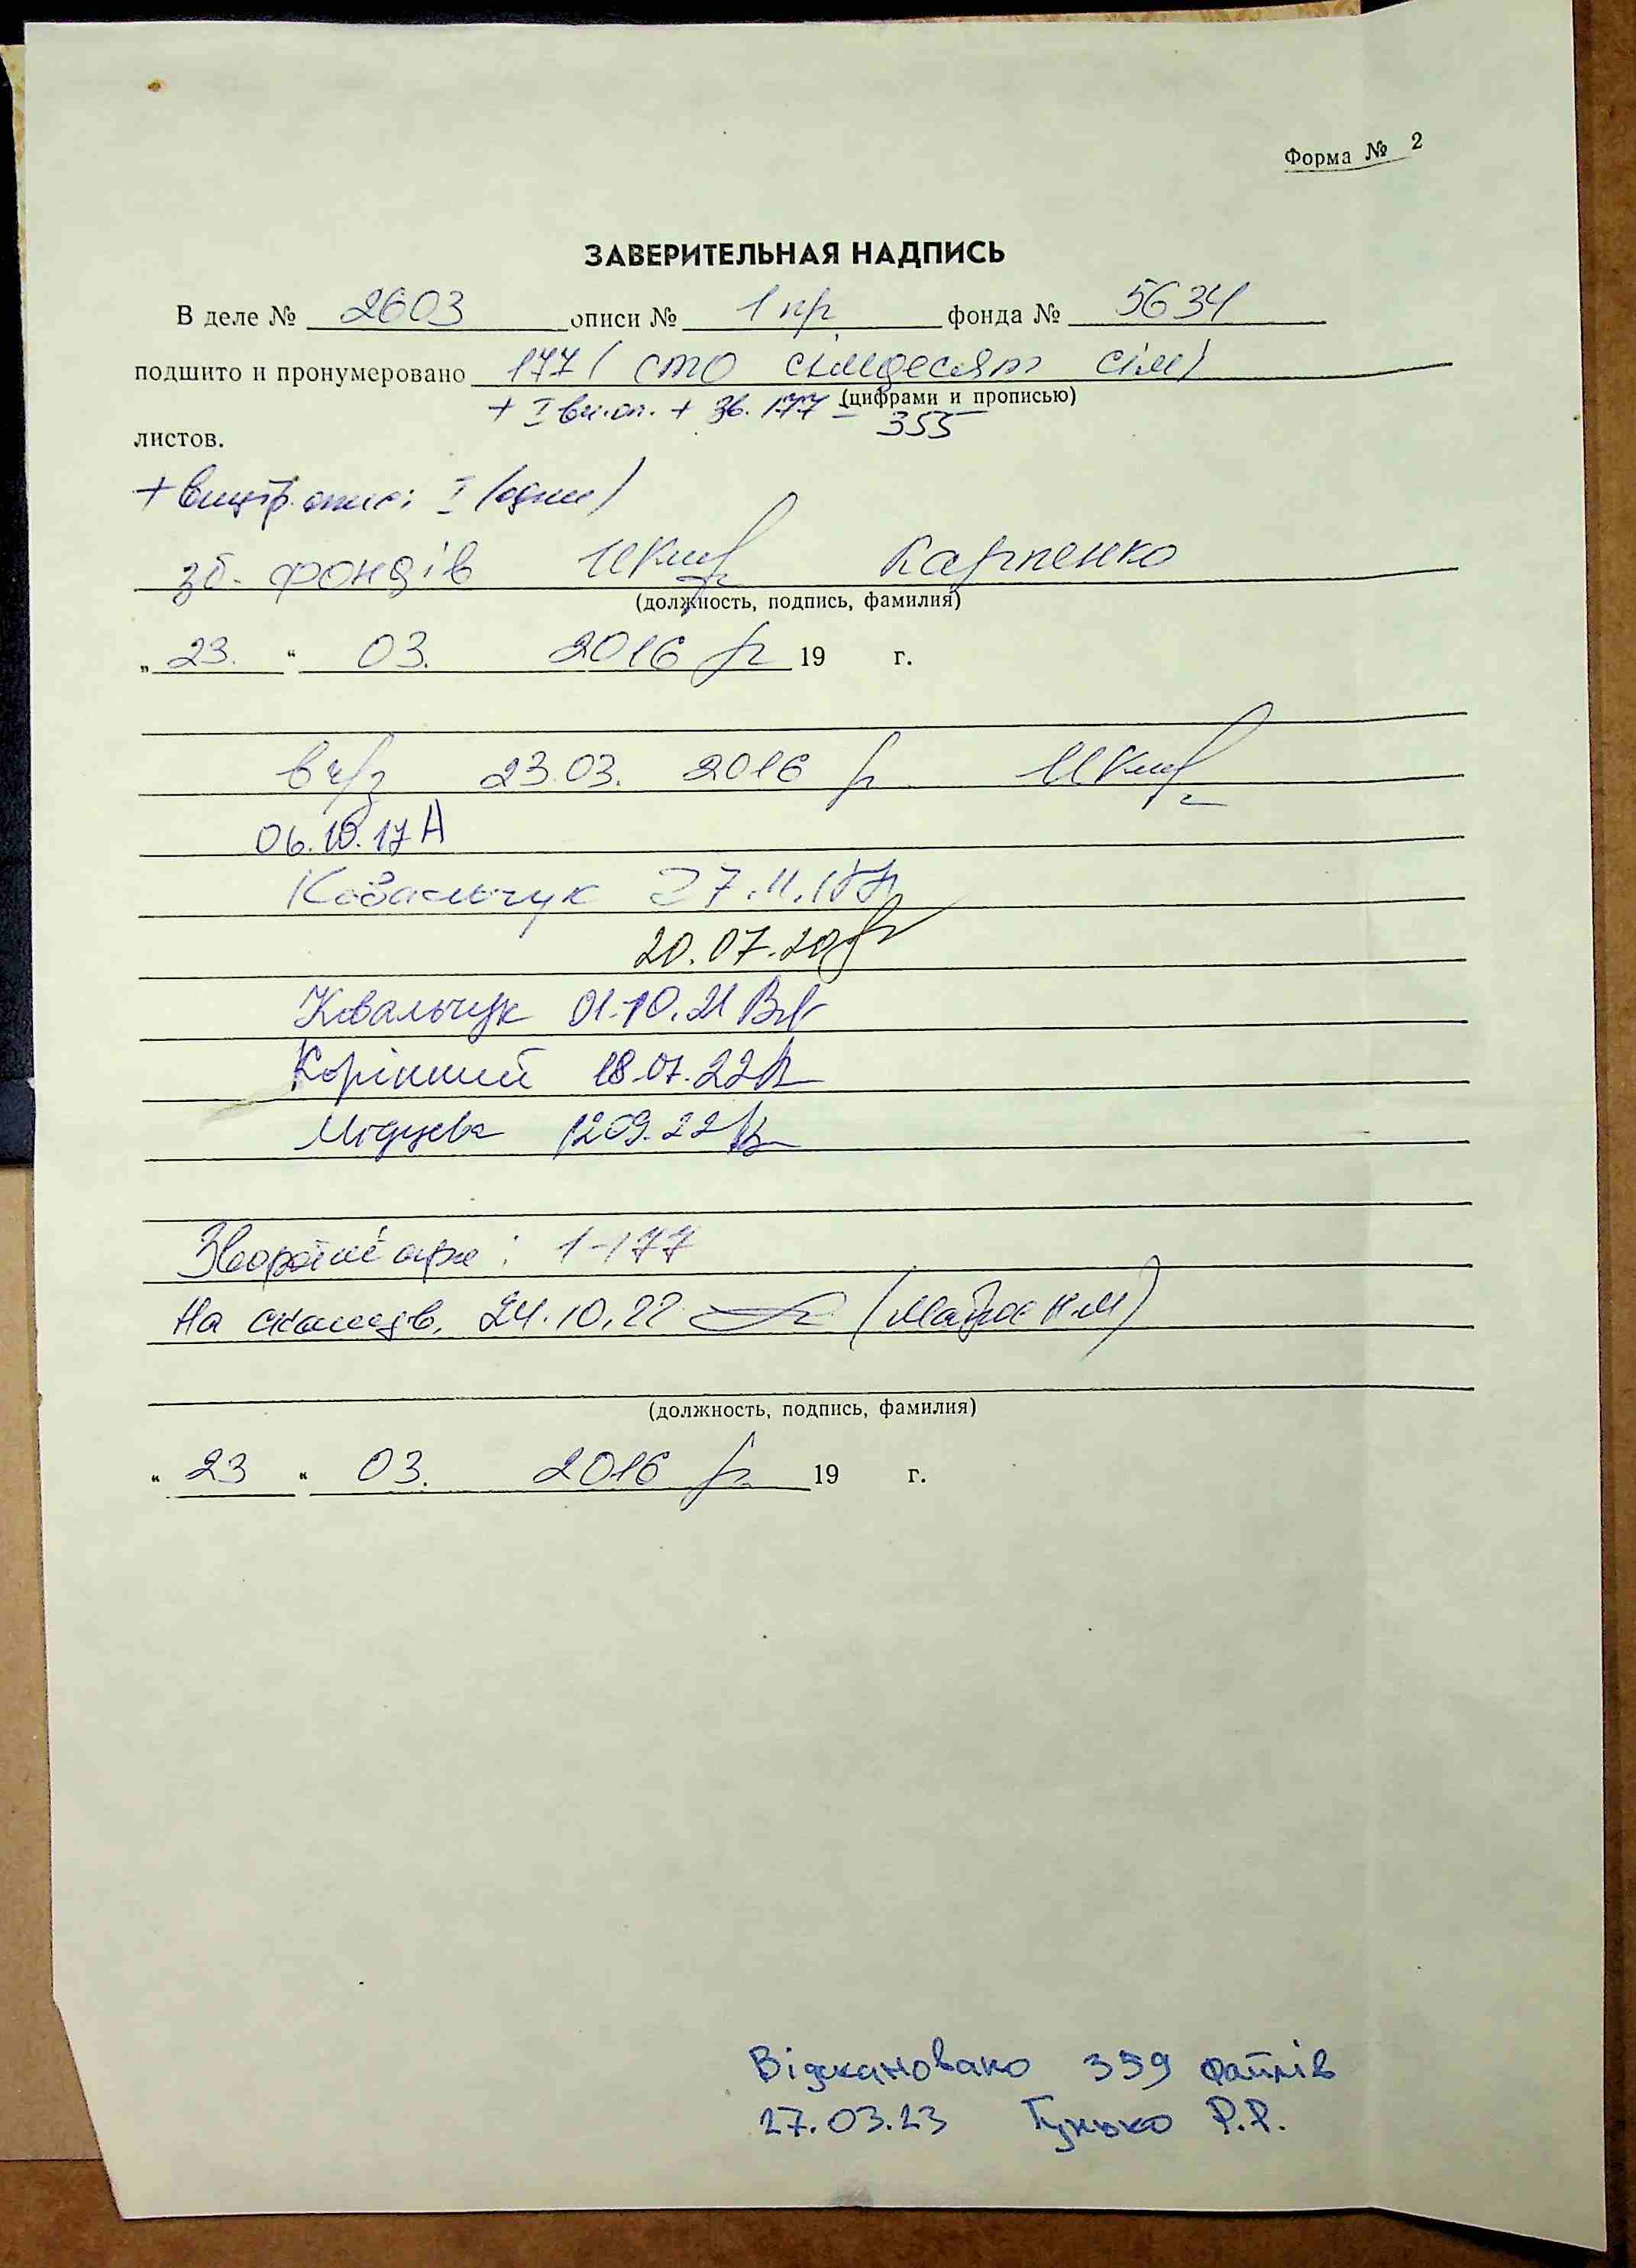 Форма № 2
ЗАВЕРИТЕЛЬНАЯ НАДПИСЬ
В деле № 2603 описи № 1 пр фонда № 5634
подшито и пронумеровано 177 (сто сімдесят сім)
(цифрами и прописью)
+ I вн.оп. + зв. 177 = 355
листов.
+ внутр. опис: I (один)
зб. фондів Карпенко
(должность, подпись, фамилия)
„ 23. “ 03. 2016 р 19 г.
в ч/з 23.03. 2016 р
06.10.17
Ковальчук 27.11.17
20.07.20
Ковальчук 01.10.21
Корінний 18.07.22
12.09.22
Зворотні арк: 1-177
На сканув. 24.10.22
(должность, подпись, фамилия)
“ 23 “ 03. 2016 р 19 г.
Відскановано 359 файлів
27.03.23 Гунько Р.Р.